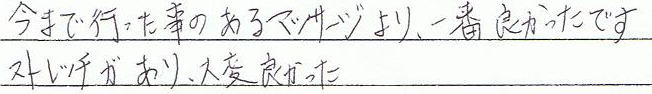 今まで行った事のあるマッサージより、一番良かったです
ストレッチがあり、大変良かった